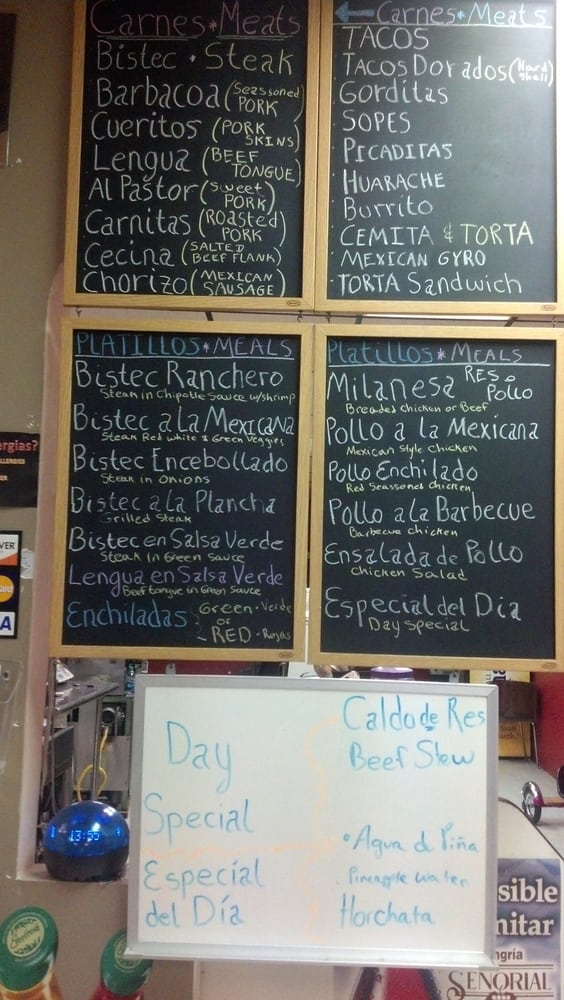 Carnes*Meats
Bistec * Steak
Barbacoa (Seassoned PORK
Cueritos (PORK SKINS)
Lengua (BEEF TONGUE)
Al Pastor (Sweet PORK)
Carnitas (Roasted PORK)
Cecina (SALTED BEEF FLANK)
Chorizo (MEXICAN SAUSAGE)
← Carnes*Meats
TACOS
TACOS Dorados (Hard Shell)
Gorditas
SOPES
PICADITAS
HUARACHE
Burrito
CEMITA & TORTA
MEXICAN GYRO
TORTA Sandwich
PLATILLOS*MEALS
Bistec Ranchero
Steak in Chipotle Sauce w/shrimp
Bistec a la Mexicana
Steak Red white & Green Veggies
Bistec Encebollado
Steak in Onions
Bistec a la Plancha
Grilled Steak
Bistec en Salsa Verde
Steak in Green Sauce
Lengua en Salsa Verde
Beef tongue in Green Sauce
Enchiladas Green-Verde
or
RED-Rojas
Platillos*MEALS
Milanesa RES o Pollo
Breaded chicken or Beef
Pollo a la Mexicana
Mexican Style chicken
Pollo Enchilado
Red Seassoned Chicken
Pollo a la Barbecue
Barbecue chicken
Ensalada de Pollo
Chicken Salad
Especial del Dia
Day special
Day
Special
Especíal
del Día
Caldo de Res
Beef Stew
Agua de Piña
Pineapple water
Horchata
ergias?
VER
A
13:55
sible
nitar
ngría
SEÑORIAL